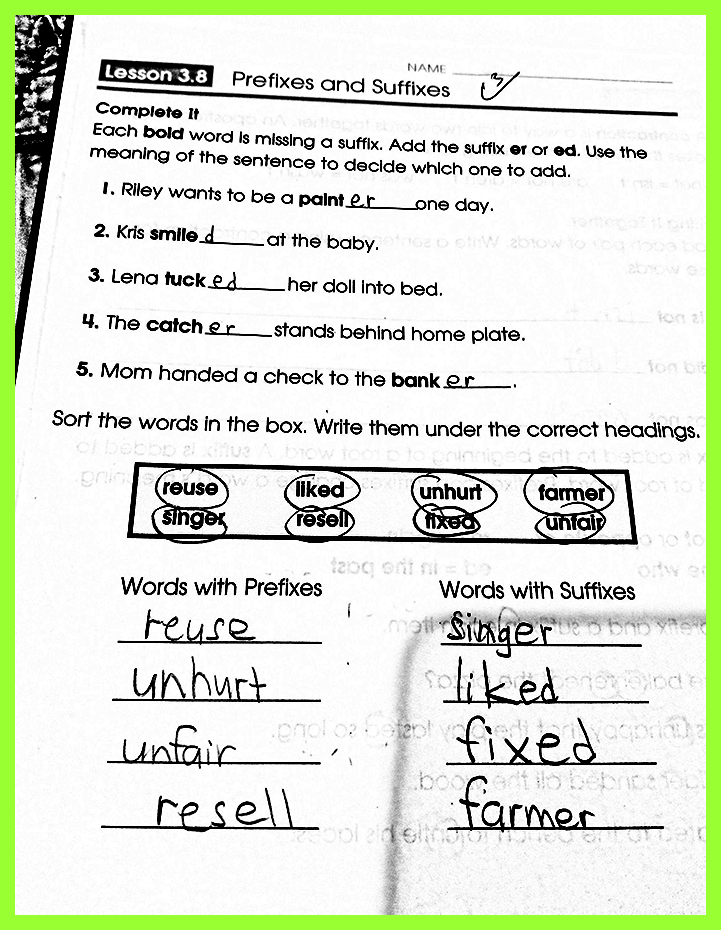 NAME
Lesson 3.8 Prefixes and Suffixes
Complete It
Each bold word is missing a suffix. Add the suffix er or ed. Use the
meaning of the sentence to decide which one to add.
1. Riley wants to be a paint er one day.
2. Kris smile d at the baby.
3. Lena tuck ed her doll into bed.
4. The catch er stands behind home plate.
5. Mom handed a check to the bank er.
Sort the words in the box. Write them under the correct headings.
reuse liked unhurt farmer
singer resell fixed unfair
Words with Prefixes Words with Suffixes
reuse singer
unhurt liked
unfair fixed
resell farmer